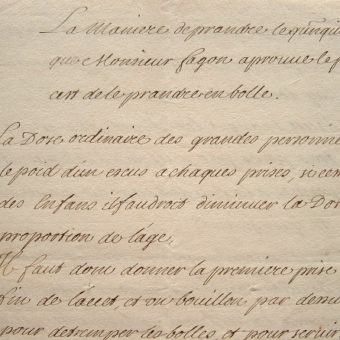 La Maniere de prandre le quinqui
que Monsieur fagon aprouue le p
est de le prandre en bolle.
La Dose ordinaire des grandes personne
le poid d'un escus a chaques prises, si cen
des Enfans il faudroit diminuer la Dos
proportion de l'age,
Il faut donc donner la premiere prise
fin de l'accet, et ou bouillon par dessu
pour detremper les bolles, et pour seruir